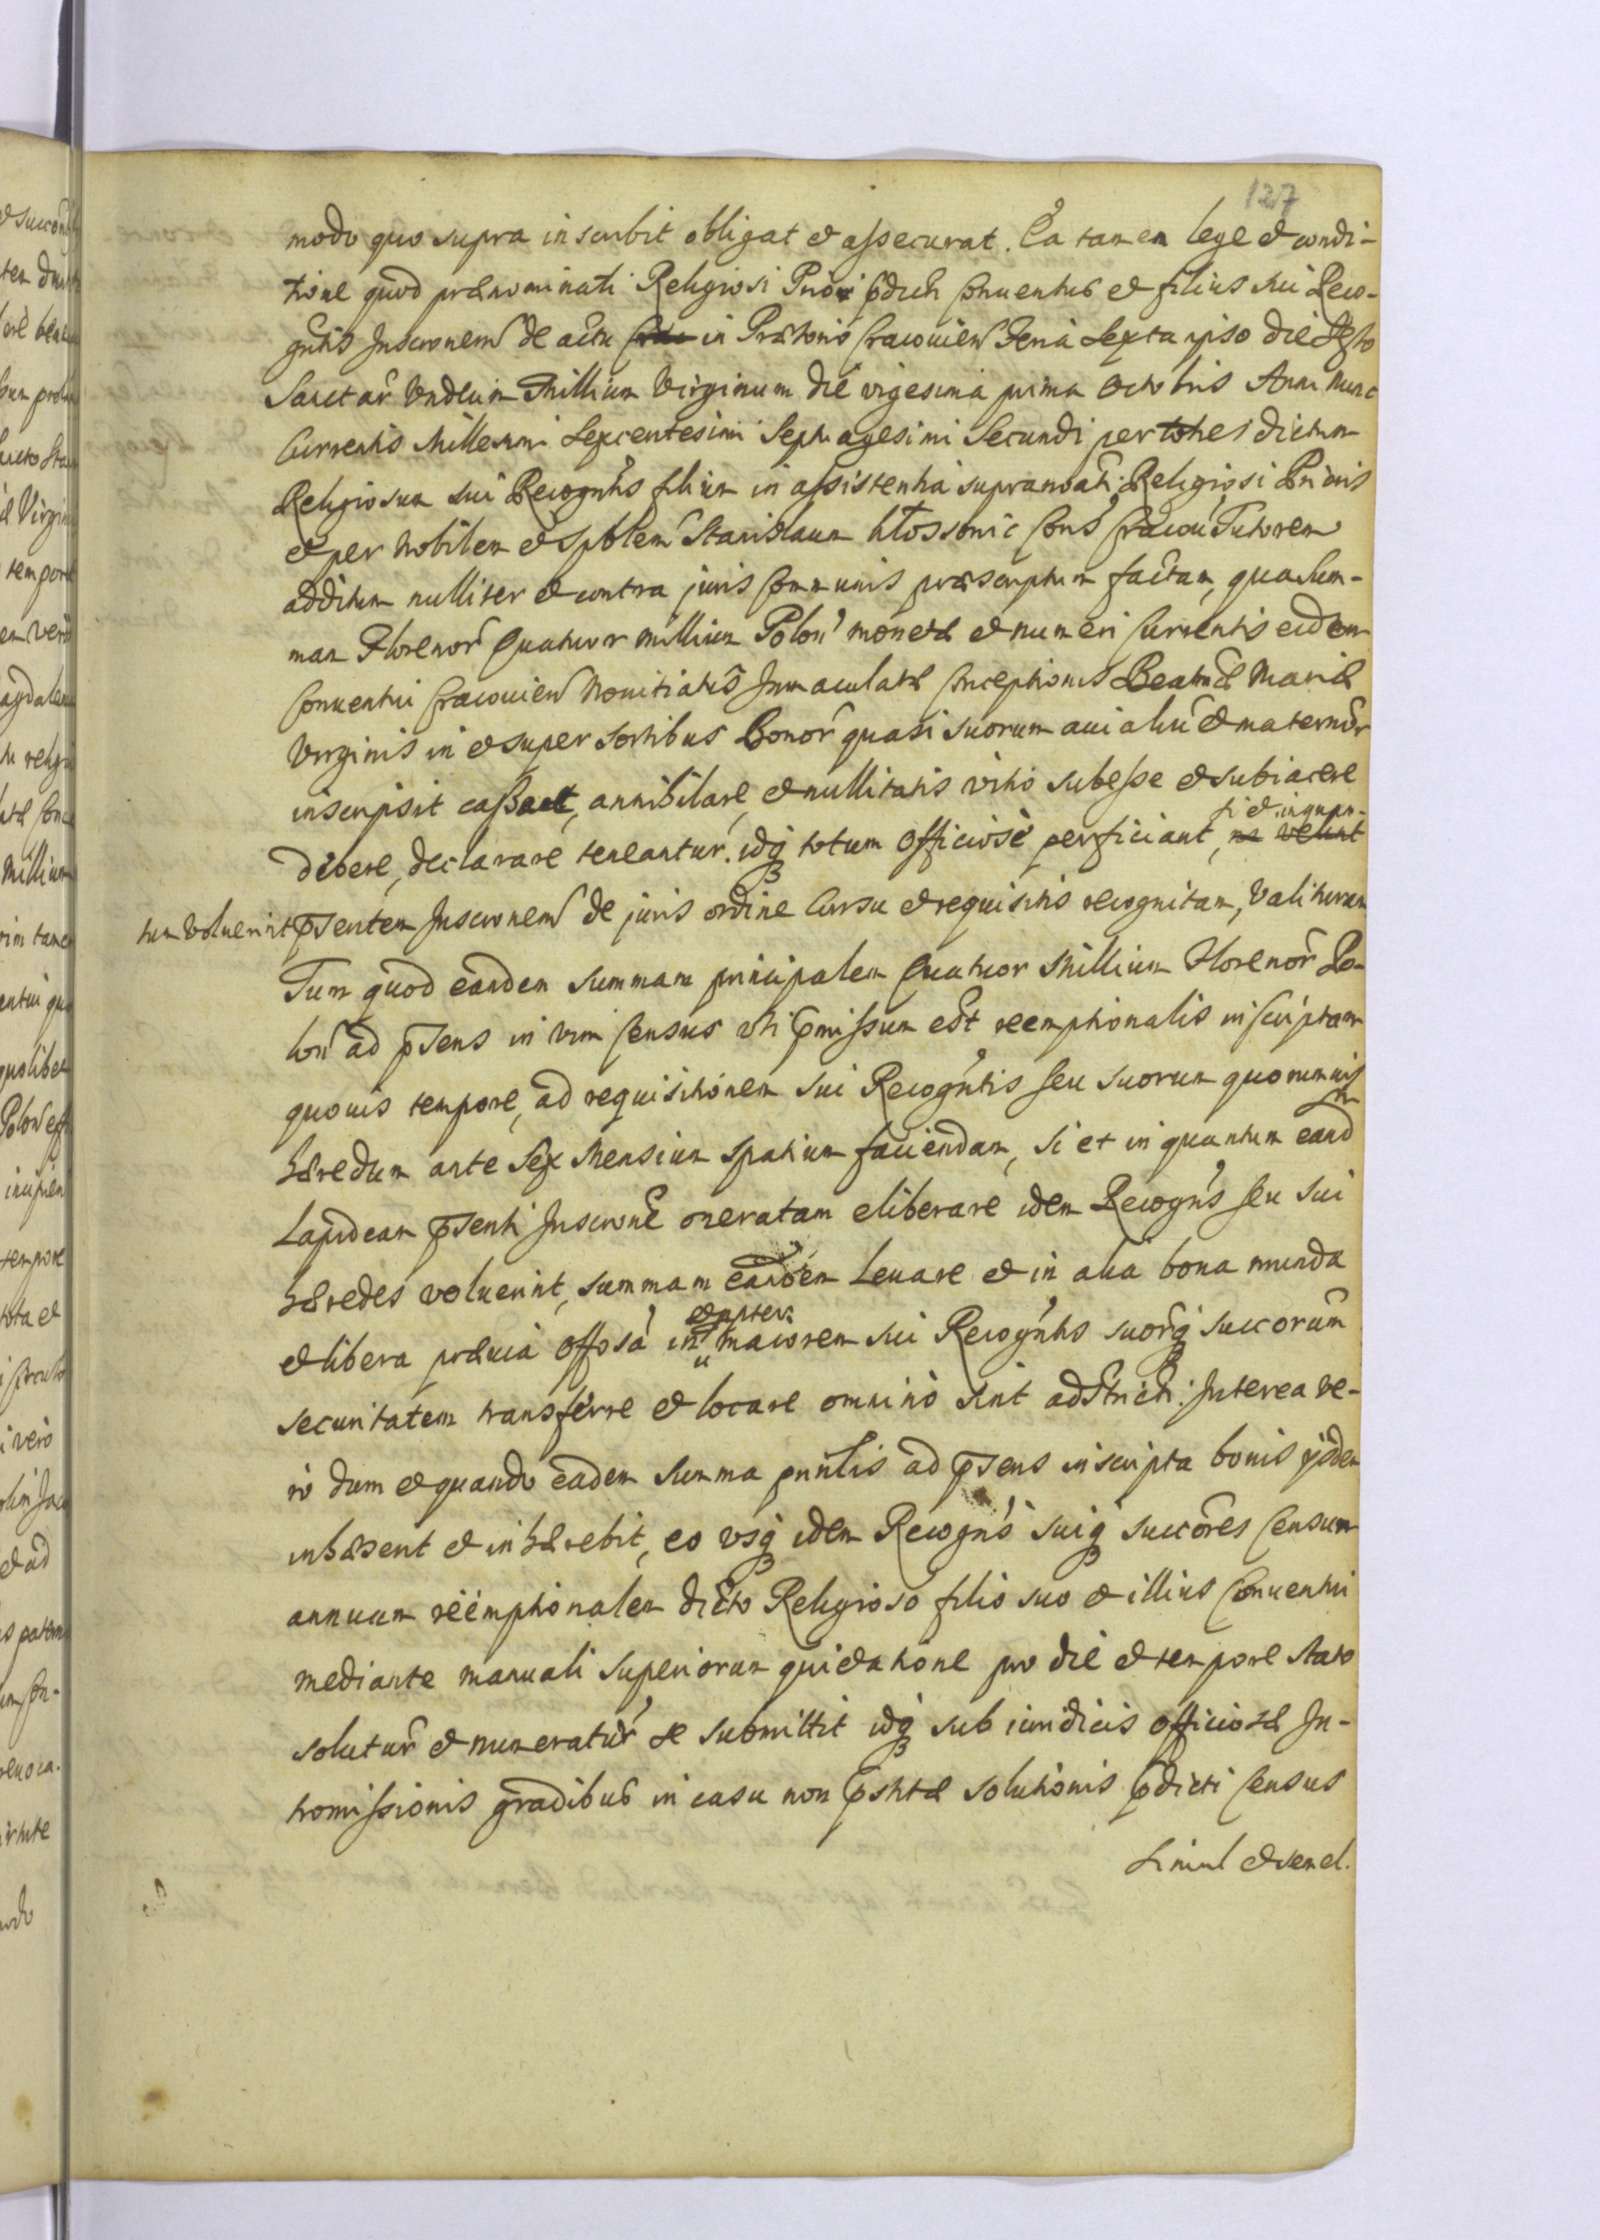 127
modo quo supra inscribit obligat et assecurat. Ea tamen lege et condi-
tione quod prænominati Religiosi Prior pdicti Conuentus et filius sui Reco-
gntis Inscronem de actu in Prætorio Cracouien Feria Sexta ipso die festo
Sanctar Undecim Millium Virginum die vigesima prima Octobris Anni nunc
Currentis Millesimi Sexcentesimi Septuagesimi Secundi per toties dictum
Religiosum sui Recogntis filium in assistentia supranoati Religiosi Prioris
et per Nobilem et Spblem Stanislaum Cons Cracou Tutorem
additum nulliter et contra juris Communis præscriptum factam, qua Sum-
mam Florenor Quatuor millium Polon monetæ et numeri Currentis eidem
Conuentui Cracouien Nouitiatus Immaculatæ Conceptionis Beatæ Mariæ
Virginis in et super sortibus Bonor quasi suorum auialiu et maternor
inscripsit cassare, annihilare, et nullitatis vitio subesse et subiacere
debere, declarare teneantur. idq totum Officiose perficiant, si et inquan-
tum voluerint psentem Inscronem de juris ordine Cursu et requisitis recognitam, valituram
Tum quod eandem summam principalem Quatuor Millium Florenor Po-
lon ad psens in vim Census vti pmissum est reemptionalis inscriptam
quouis tempore, ad requisitionem sui Recogntis seu suorum quorumuis
hæredum ante Sex Mensium spatium faciendam, si et in quantum eand
Lapideam psenti Inscrone oneratam eliberare idem Recogns seu sui
hæredes voluerint, summam eandem Leuare et in alia bona munda
et libera præuia Offosa in maiorem sui Recogntis suorq succorum
securitatem transferre et locare omnino sint adstricti. Interea ve-
ro dum et quando eadem summa pnntis ad psens inscripta bonis ijsdem
inhæserit et inhærebit, eo vsq idem Recogns suiq succores Censum
annuum reemptionalem dicto Religioso filio suo et illius Conuentui
mediante manuali superiorum quietatione pro die et tempore stato
soluturu et numeraturu se submittit idq sub iuridicis officiosæ In-
tromissionis gradibus in casu non pstitæ solutionis pdicti Census
Simul et semel.